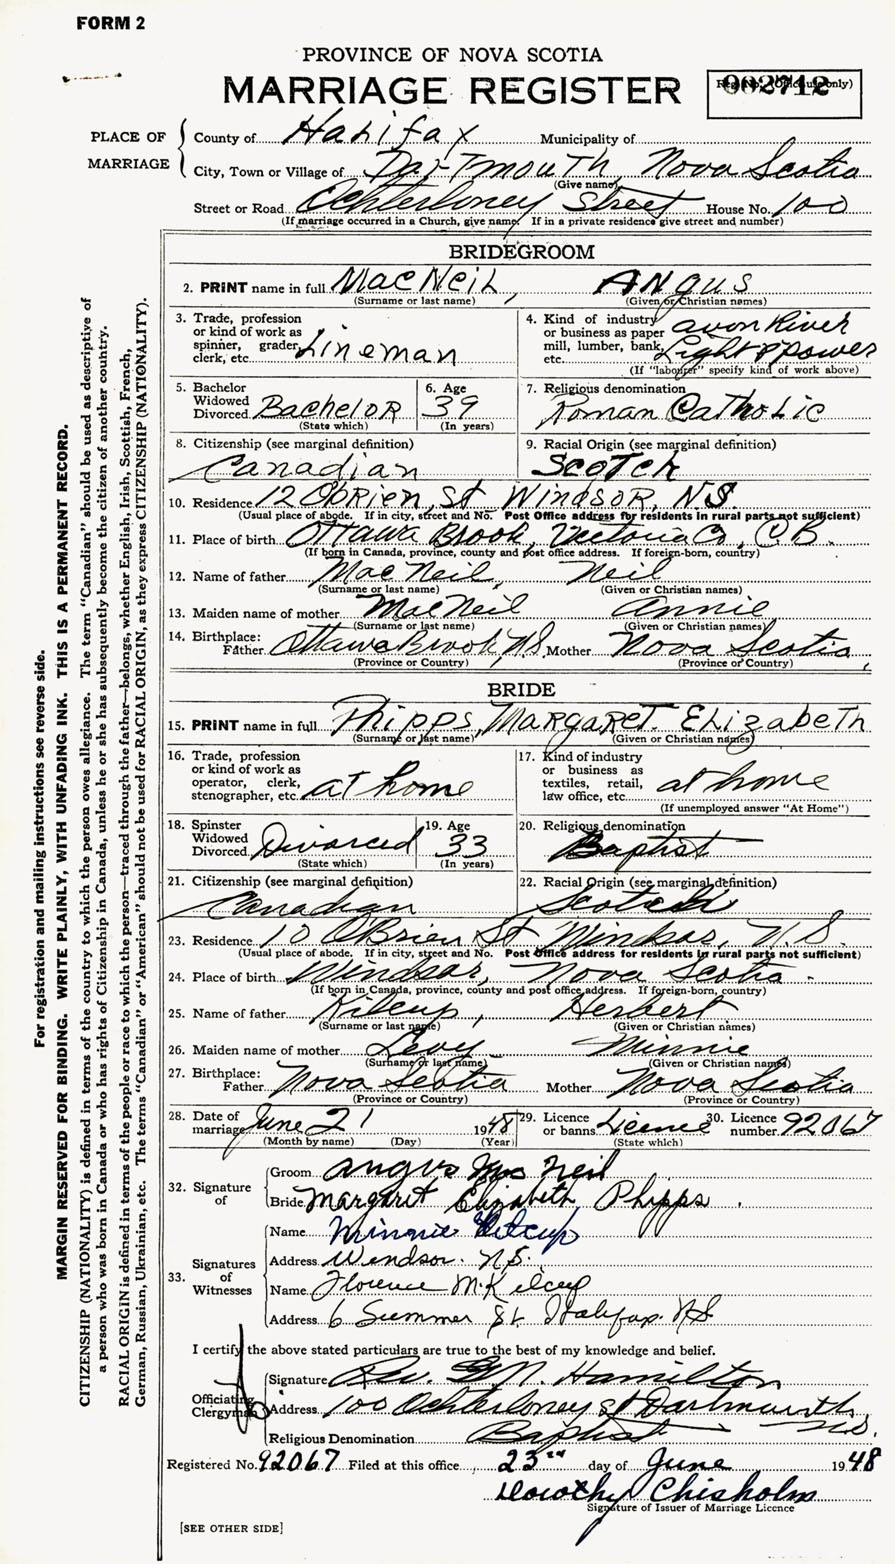 FORM 2
PROVINCE OF NOVA SCOTIA
MARRIAGE REGISTER
002712
PLACE OF MARRIAGE
County of Halifax Municipality of
City, Town or Village of Dartmouth, Nova Scotia
(Give name)
Street or Road Ochterloney Street House No. 100
(If marriage occurred in a Church, give name. If in a private residence give street and number)
BRIDEGROOM
2. PRINT name in full MacNeil, Angus
(Surname or last name) (Given or Christian names)
3. Trade, profession or kind of work as spinner, grader, clerk, etc. Lineman
4. Kind of industry or business as paper mill, lumber, bank, etc. Avon River Light & Power
(If "labourer" specify kind of work above)
5. Bachelor Widowed Divorced Bachelor
(State which)
6. Age 39
(In years)
7. Religious denomination
Roman Catholic
8. Citizenship (see marginal definition)
Canadian
9. Racial Origin (see marginal definition)
Scotch
10. Residence 12 OBrien St Windsor, N.S.
(Usual place of abode. If in city, street and No. Post Office address for residents in rural parts not sufficient)
11. Place of birth Ottawa Brook, Victoria Co, C B.
(If born in Canada, province, county and post office address. If foreign-born, country)
12. Name of father MacNeil, Neil
(Surname or last name) (Given or Christian names)
13. Maiden name of mother MacNeil Annie
(Surname or last name) (Given or Christian names)
14. Birthplace: Father Ottawa Brook, N.S. Mother Nova Scotia
(Province or Country) (Province or Country)
BRIDE
15. PRINT name in full Phipps, Margaret Elizabeth
(Surname or last name) (Given or Christian names)
16. Trade, profession or kind of work as operator, clerk, stenographer, etc. at home
17. Kind of industry or business as textiles, retail, law office, etc. at home
(If unemployed answer "At Home")
18. Spinster Widowed Divorced Divorced
(State which)
19. Age 33
(In years)
20. Religious denomination
Baptist
21. Citizenship (see marginal definition)
Canadian
22. Racial Origin (see marginal definition)
Scotch
23. Residence 10 OBrien St Windsor, N.S.
(Usual place of abode. If in city, street and No. Post Office address for residents in rural parts not sufficient)
24. Place of birth Windsor, Nova Scotia
(If born in Canada, province, county and post office address. If foreign-born, country)
25. Name of father Kilcup, Herbert
(Surname or last name) (Given or Christian names)
26. Maiden name of mother Levy Minnie
(Surname or last name) (Given or Christian names)
27. Birthplace: Father Nova Scotia Mother Nova Scotia
(Province or Country) (Province or Country)
28. Date of marriage June 21 1948
(Month by name) (Day) (Year)
29. Licence or banns Licence
(State which)
30. Licence number 92067
32. Signature of
Groom Angus Mac Neil
Bride Margaret Elizabeth Phipps
33. Signatures of Witnesses
Name Minnie Kilcup
Address Windsor. N.S.
Name Florence M. Kilcup
Address 6 Summer St. Halifax. NS
I certify the above stated particulars are true to the best of my knowledge and belief.
Officiating Clergyman
Signature Rev. G N. Hamilton
Address 100 Ochterloney St Dartmouth N.S.
Religious Denomination Baptist
Registered No. 92067 Filed at this office, 23rd day of June 1948
Dorothy Chisholm
Signature of Issuer of Marriage Licence
[SEE OTHER SIDE]
For registration and mailing instructions see reverse side.
MARGIN RESERVED FOR BINDING. WRITE PLAINLY, WITH UNFADING INK. THIS IS A PERMANENT RECORD.
CITIZENSHIP (NATIONALITY) is defined in terms of the country to which the person owes allegiance. The term "Canadian" should be used as descriptive of
a person who was born in Canada or who has rights of Citizenship in Canada, unless he or she has subsequently become the citizen of another country.
RACIAL ORIGIN is defined in terms of the people or race to which the person—traced through the father—belongs, whether English, Irish, Scottish, French,
German, Russian, Ukrainian, etc. The terms "Canadian" or "American" should not be used for RACIAL ORIGIN, as they express CITIZENSHIP (NATIONALITY).